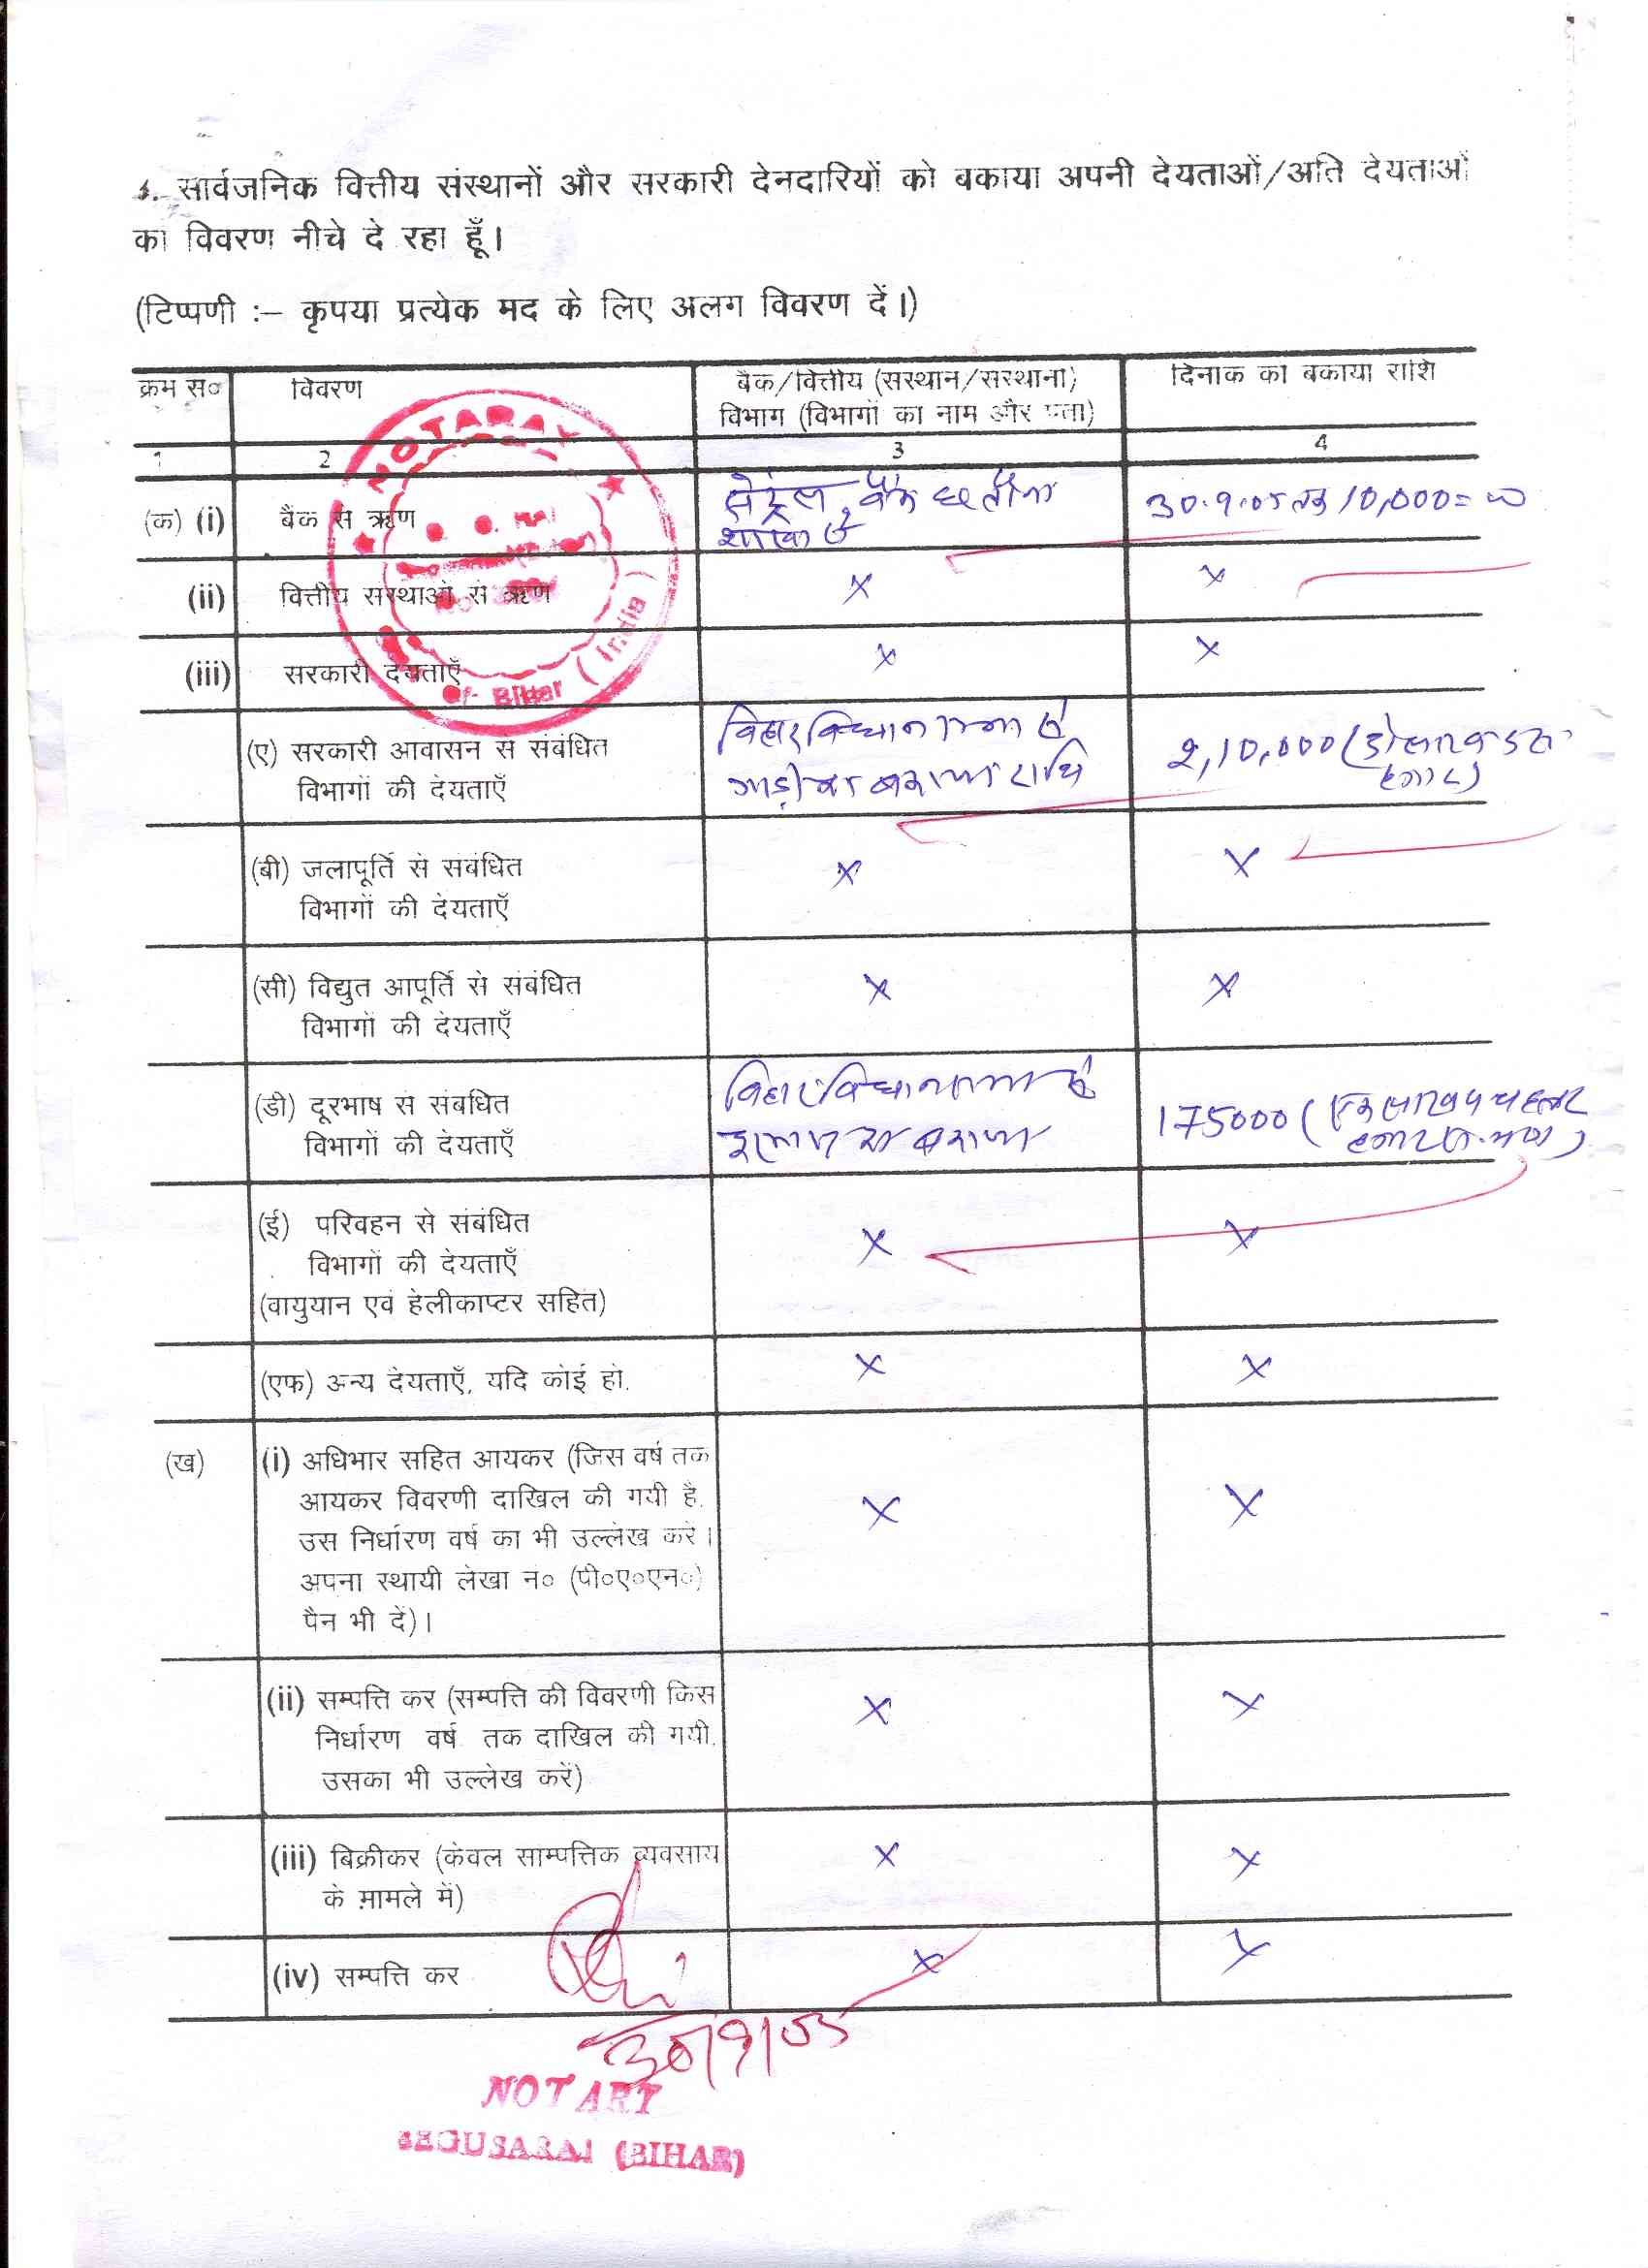 4. सार्वजनिक वित्तीय संस्थानों और सरकारी देनदारियों को बकाया अपनी देयताओं/अति देयताओं
का विवरण नीचे दे रहा हूँ।
(टिप्पणी :– कृपया प्रत्येक मद के लिए अलग विवरण दें।)
क्रम स० विवरण बैंक/वित्तीय (संस्थान/संस्थानों) दिनांक का बकाया राशि
विभाग (विभागों का नाम और पता)
1 2 3 4
(क) (i) बैंक से ऋण सेंट्रल बैंक 30.9.05 तक 10,000=00
शाखा से
(ii) वित्तीय संस्थाओं से ऋण × ×
(iii) सरकारी देयताएँ × ×
(ए) सरकारी आवासन से संबंधित बिहार विधान सभा से 2,10,000 (दो लाख दस
विभागों की देयताएँ गाड़ी का बकाया राशि हजार)
(बी) जलापूर्ति से संबंधित × ×
विभागों की देयताएँ
(सी) विद्युत आपूर्ति से संबंधित × ×
विभागों की देयताएँ
(डी) दूरभाष से संबंधित बिहार विधान सभा से 175000 (एक लाख पचहत्तर
विभागों की देयताएँ का बकाया हजार
(ई) परिवहन से संबंधित × ×
विभागों की देयताएँ
(वायुयान एवं हेलीकाप्टर सहित)
(एफ) अन्य देयताएँ, यदि कोई हो. × ×
(ख) (i) अधिभार सहित आयकर (जिस वर्ष तक × ×
आयकर विवरणी दाखिल की गयी है.
उस निर्धारण वर्ष का भी उल्लेख करें।
अपना स्थायी लेखा न० (पी०ए०एन०)
पैन भी दें)।
(ii) सम्पत्ति कर (सम्पत्ति की विवरणी किस × ×
निर्धारण वर्ष तक दाखिल की गयी.
उसका भी उल्लेख करें)
(iii) बिक्रीकर (केवल साम्पत्तिक व्यवसाय × ×
के मामले में)
(iv) सम्पत्ति कर × ×
30/9/05
NOTARY
BEGUSARAI (BIHAR)
NOTARAY
Of Bihar (India)